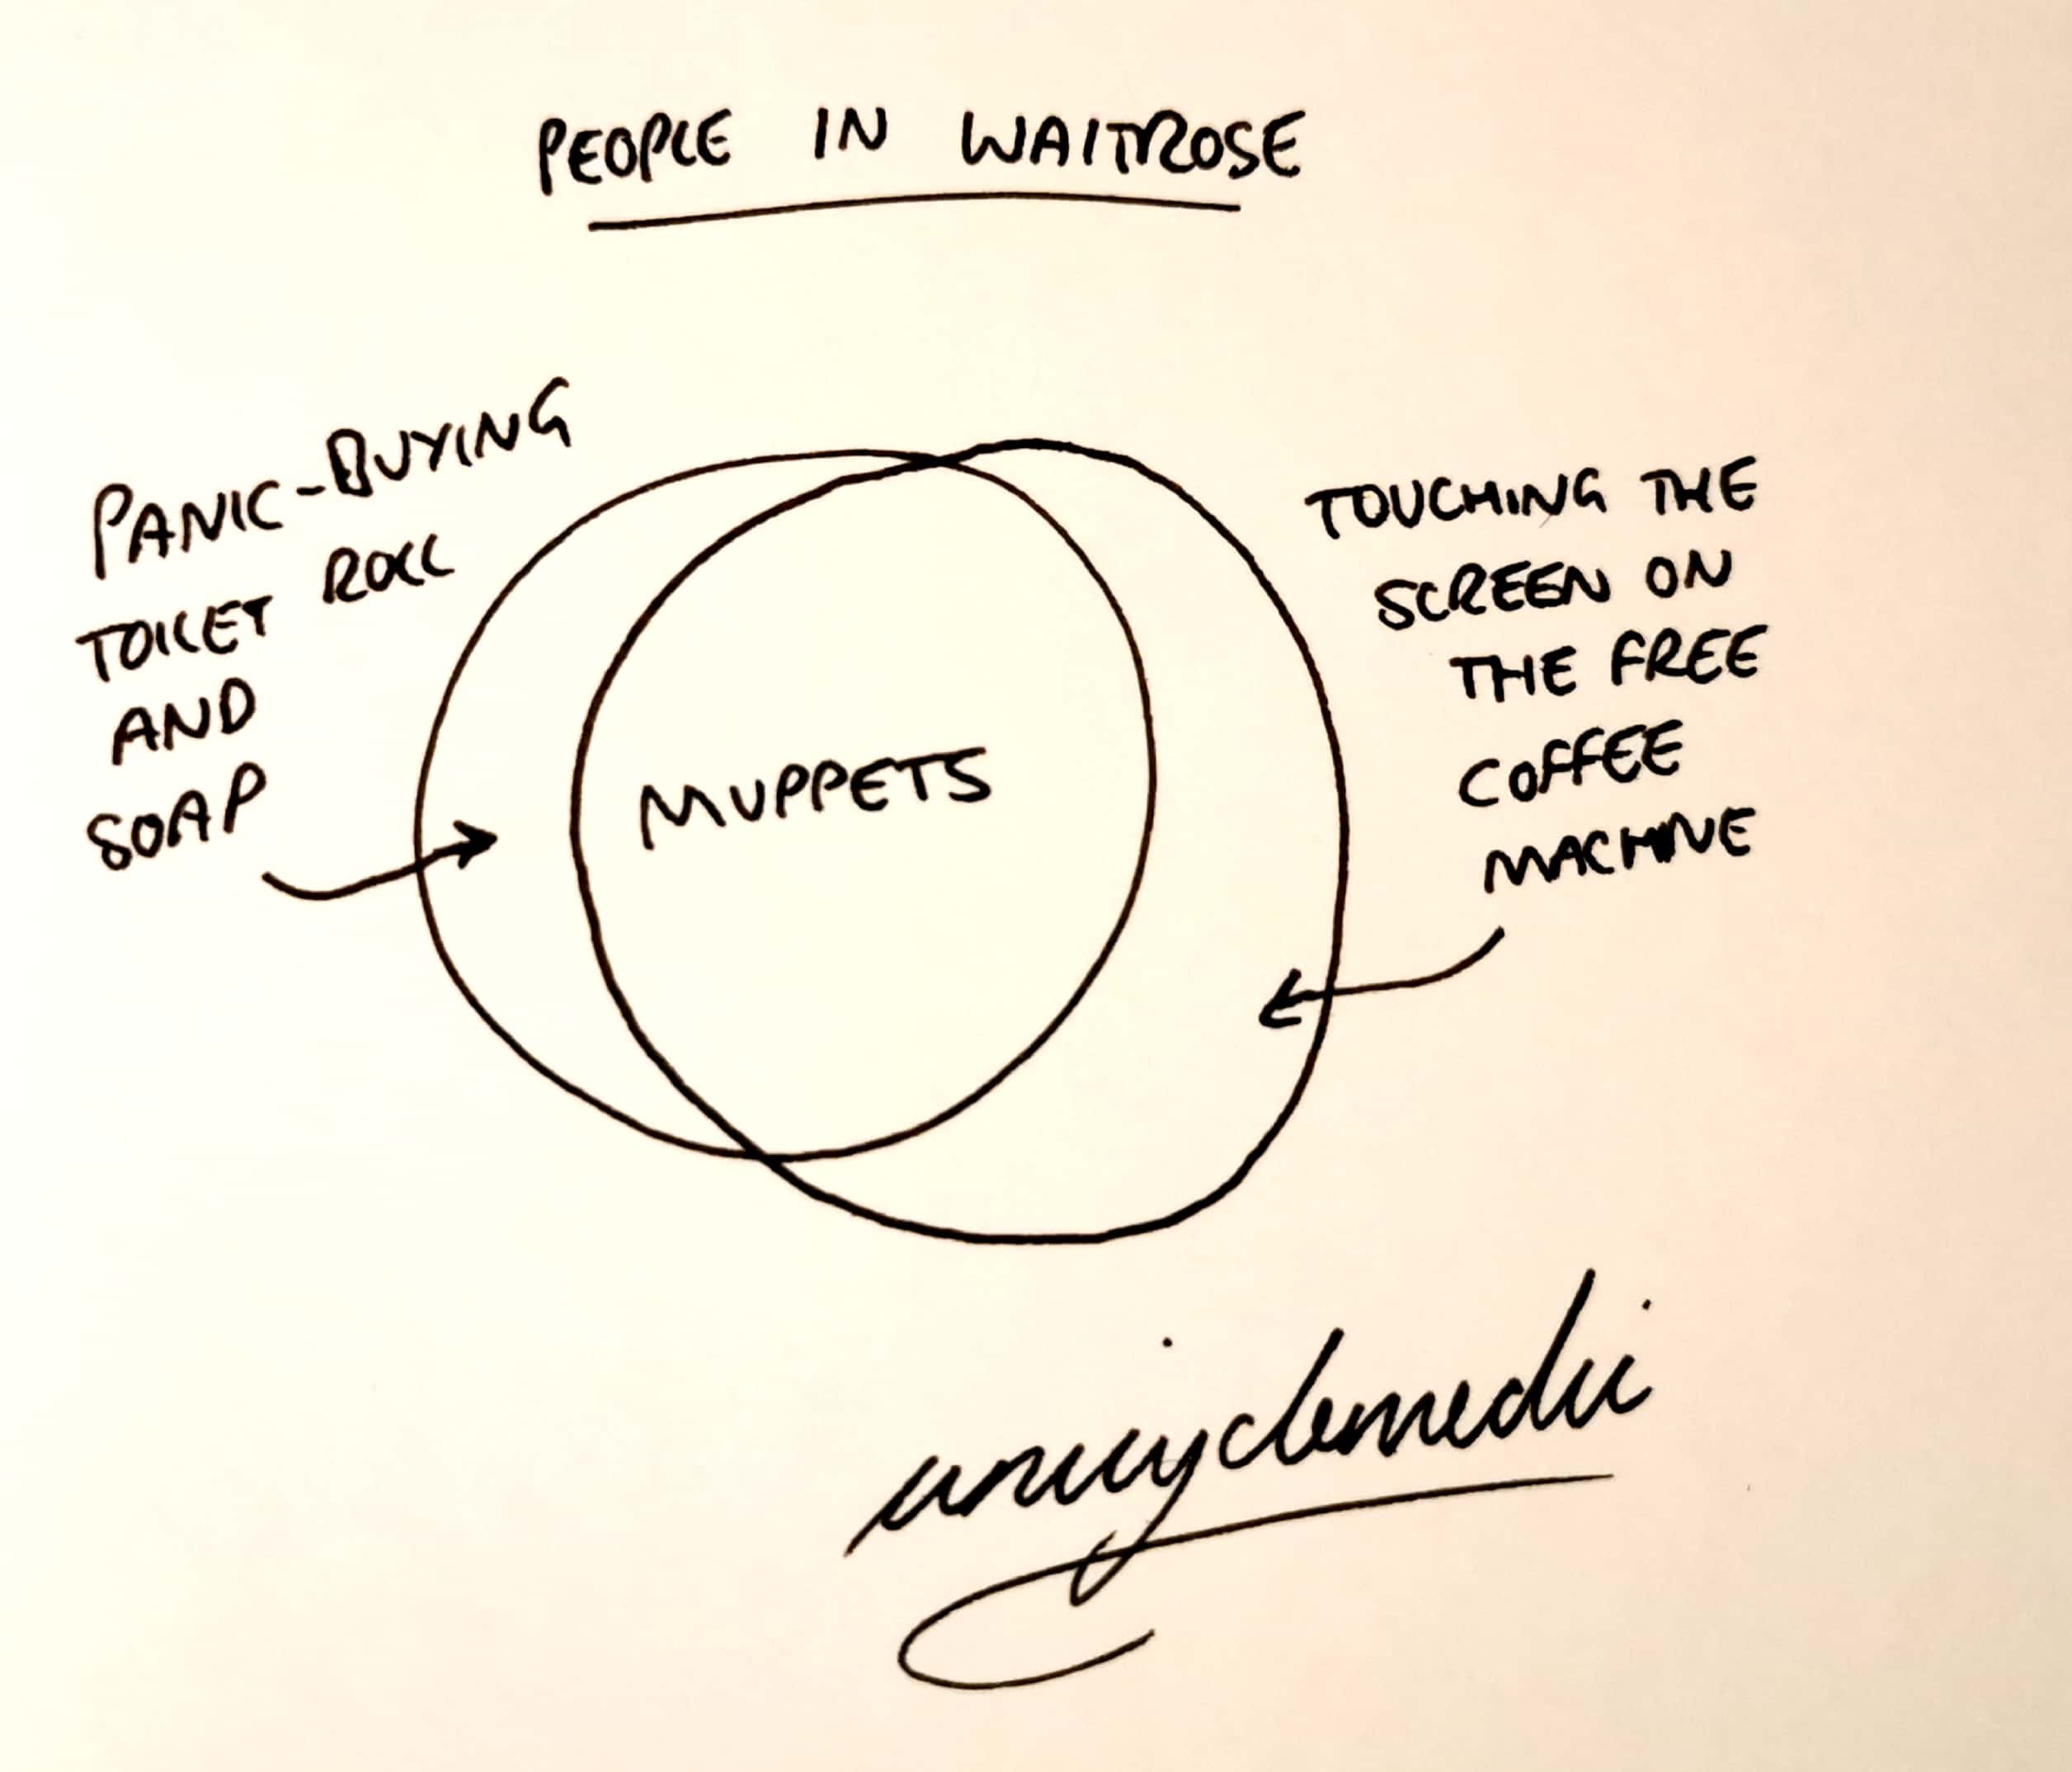 PEOPLE IN WAITROSE
PANIC-BUYING
TOILET ROLL
AND
SOAP
MUPPETS
TOUCHING THE
SCREEN ON
THE FREE
COFFEE
MACHINE
unicyclemedic